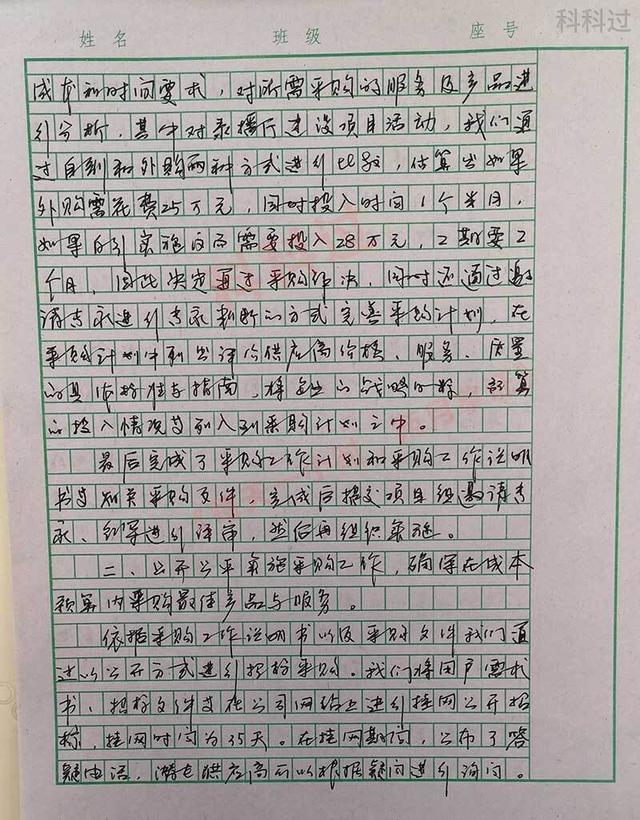 姓名 班级 座号
科科过
成本和时间要求，对所需采购的服务及产品进
行分析，其中对录播厅建设项目活动，我们通
过自制和外购两种方式进行比较，估算出如果
外购需花费25万元，同时投入时间1个半月，
如果自行实施反而需要投入28万元，工期要2
个月，因此决定通过采购解决，同时还通过邀
请专家进行专家判断的方式完善采购计划，在
采购计划中列出评价供应商价格、服务、质量
的具体标准与指南，将企业的战略目标，预算
的投入情况等列入到采购计划之中。
最后完成了采购工作计划和采购工作说明
书等相关采购文件，完成后提交项目组邀请专
家、领导进行评审，然后再组织实施。
二、公开公平实施采购工作，确保在成本
预算内采购最佳产品与服务。
依据采购工作说明书以及采购文件我们通
过以公开方式进行招标采购。我们将用户需求
书、招标文件等在公司网络上进行挂网公开招
标，挂网时间为35天。在挂网期间，公布了答
疑电话，潜在供应商可以根据疑问进行询问。